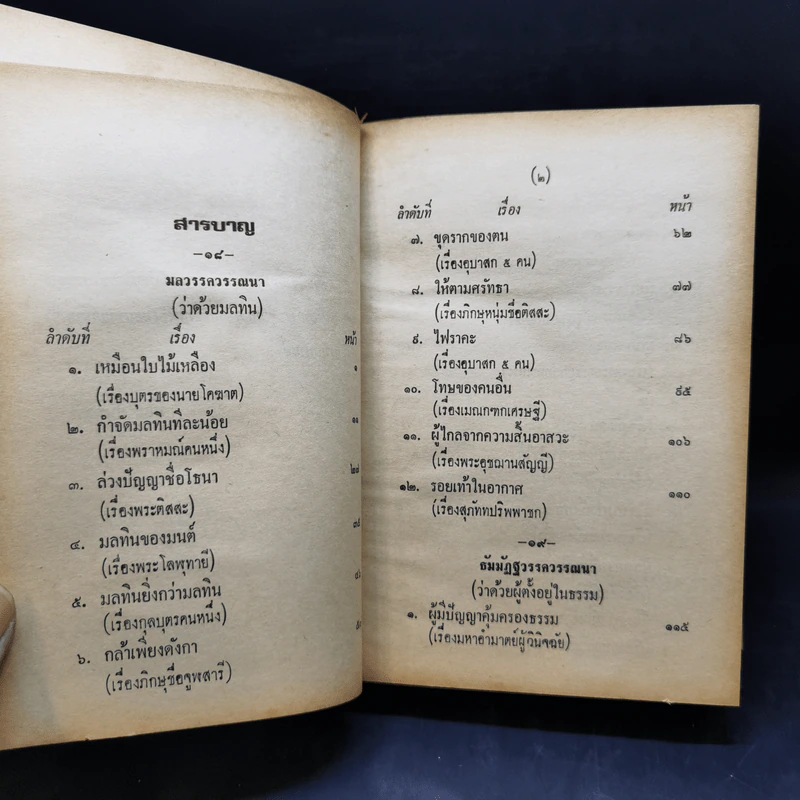 สารบาญ
—๑๘—
มลวรรควรรณนา
(ว่าด้วยมลทิน)
ลำดับที่ เรื่อง หน้า
๑. เหมือนใบไม้เหลือง ๑
(เรื่องบุตรของนายโคฆาต)
๒. กำจัดมลทินทีละน้อย ๑๑
(เรื่องพราหมณ์คนหนึ่ง)
๓. ล่วงปัญญาชื่อโธนา ๒๘
(เรื่องพระติสสะ)
๔. มลทินของมนต์
(เรื่องพระโลฬุทายี)
๕. มลทินยิ่งกว่ามลทิน
(เรื่องกุลบุตรคนหนึ่ง)
๖. กล้าเพียงดังกา
(เรื่องภิกษุชื่อจูฬสารี)
(๒)
ลำดับที่ เรื่อง หน้า
๗. ขุดรากของตน ๖๒
(เรื่องอุบาสก ๕ คน)
๘. ให้ตามศรัทธา ๗๗
(เรื่องภิกษุหนุ่มชื่อติสสะ)
๙. ไฟราคะ ๘๖
(เรื่องอุบาสก ๕ คน)
๑๐. โทษของคนอื่น ๙๕
(เรื่องเมณฑกเศรษฐี)
๑๑. ผู้ไกลจากความสิ้นอาสวะ ๑๐๖
(เรื่องพระอุชฌานสัญญี)
๑๒. รอยเท้าในอากาศ ๑๑๐
(เรื่องสุภัททปริพพาชก)
—๑๙—
ธัมมัฏฐวรรควรรณนา
(ว่าด้วยผู้ตั้งอยู่ในธรรม)
๑. ผู้มีปัญญาคุ้มครองธรรม ๑๑๕
(เรื่องมหาอำมาตย์ผู้วินิจฉัย)